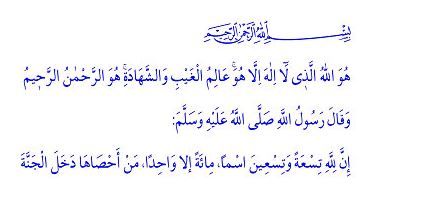 بِسْمِ اللّٰهِ الرَّحْمٰنِ الرَّحِيمِ
هُوَ اللّٰهُ الَّذِي لَٓا اِلٰهَ اِلَّا هُوَۚ عَالِمُ الْغَيْبِ وَالشَّهَادَةِۚ هُوَ الرَّحْمٰنُ الرَّحٖيمُ
وَقَالَ رَسُولُ اللَّهِ صَلَّى اللَّهُ عَلَيْهِ وَسَلَّمَ:
إِنَّ لِلَّهِ تِسْعَةً وَتِسْعِينَ اسْمًا، مِائَةً إلا وَاحِدًا، مَنْ أَحْصَاهَا دَخَلَ الْجَنَّةَ